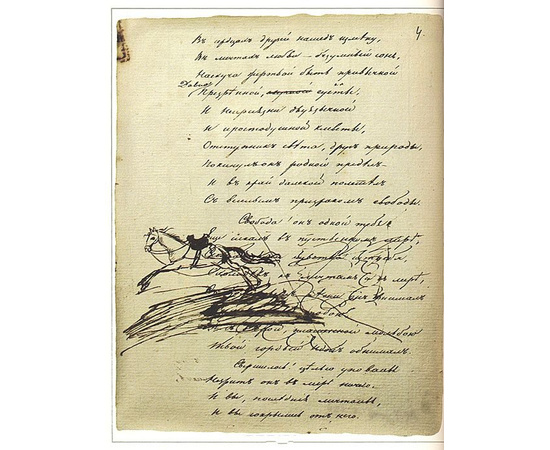 4.
Въ сердцахъ друзей нашедъ измѣну,
Въ мечтахъ любви — безумный сонъ,
Наскуча жертвой быть привычной
Давно
Презрѣнной, суеты,
И непріязни двуязычной
И простодушной клеветы,
Отступникъ свѣта, другъ природы,
Покинулъ онъ родной предѣлъ —
И въ край далекой полетѣлъ
Съ веселымъ призракомъ свободы.
Свобода! онъ одной тебя
Еще искалъ въ пустынномъ мірѣ,
чувства
къ мечтамъ и къ лирѣ,
онъ внималъ
И съ вѣрой, пламенной мольбою
Твой гордой идолъ обнималъ.
Свершилось! цѣлью упованья
Незритъ онъ въ мірѣ ничего.
И вы, послѣднія мечтанья,
И вы сокрылись отъ него.